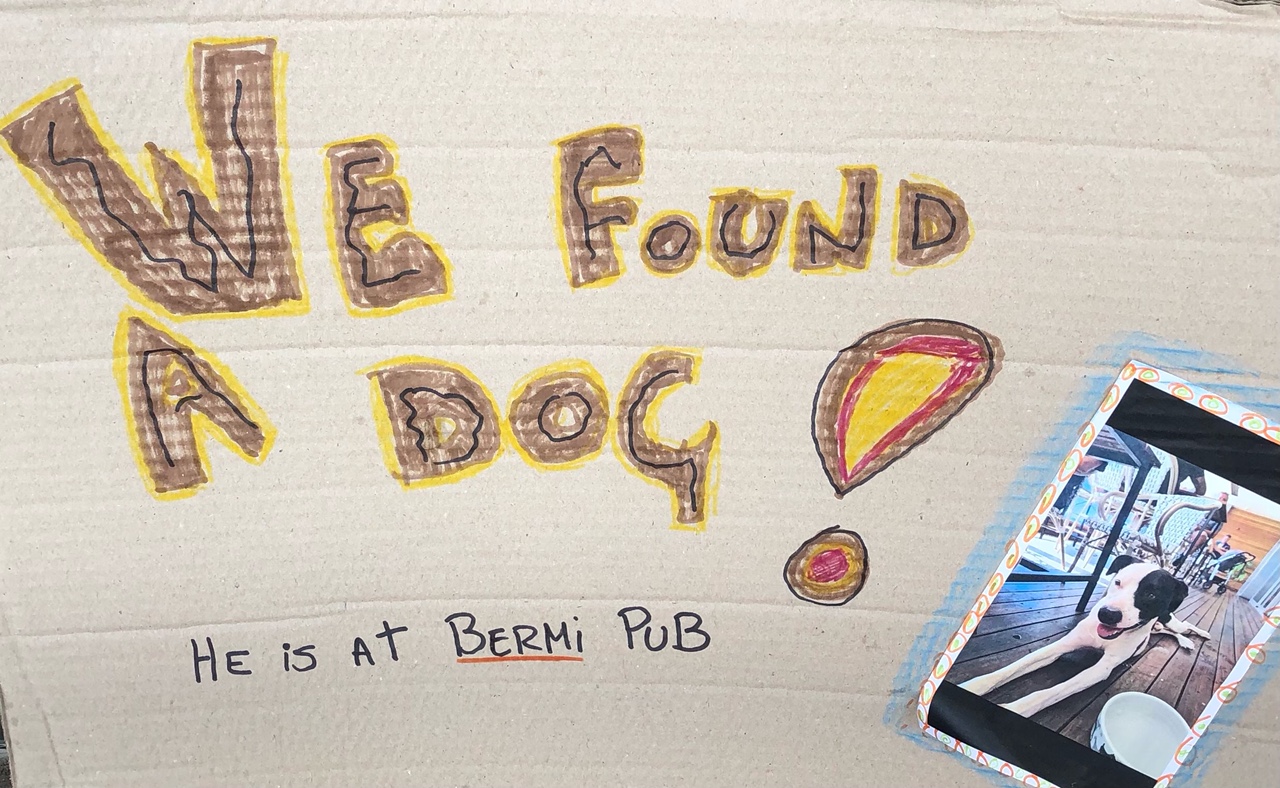 WE FOUND
A DOG!
HE iS AT BERMi PUB